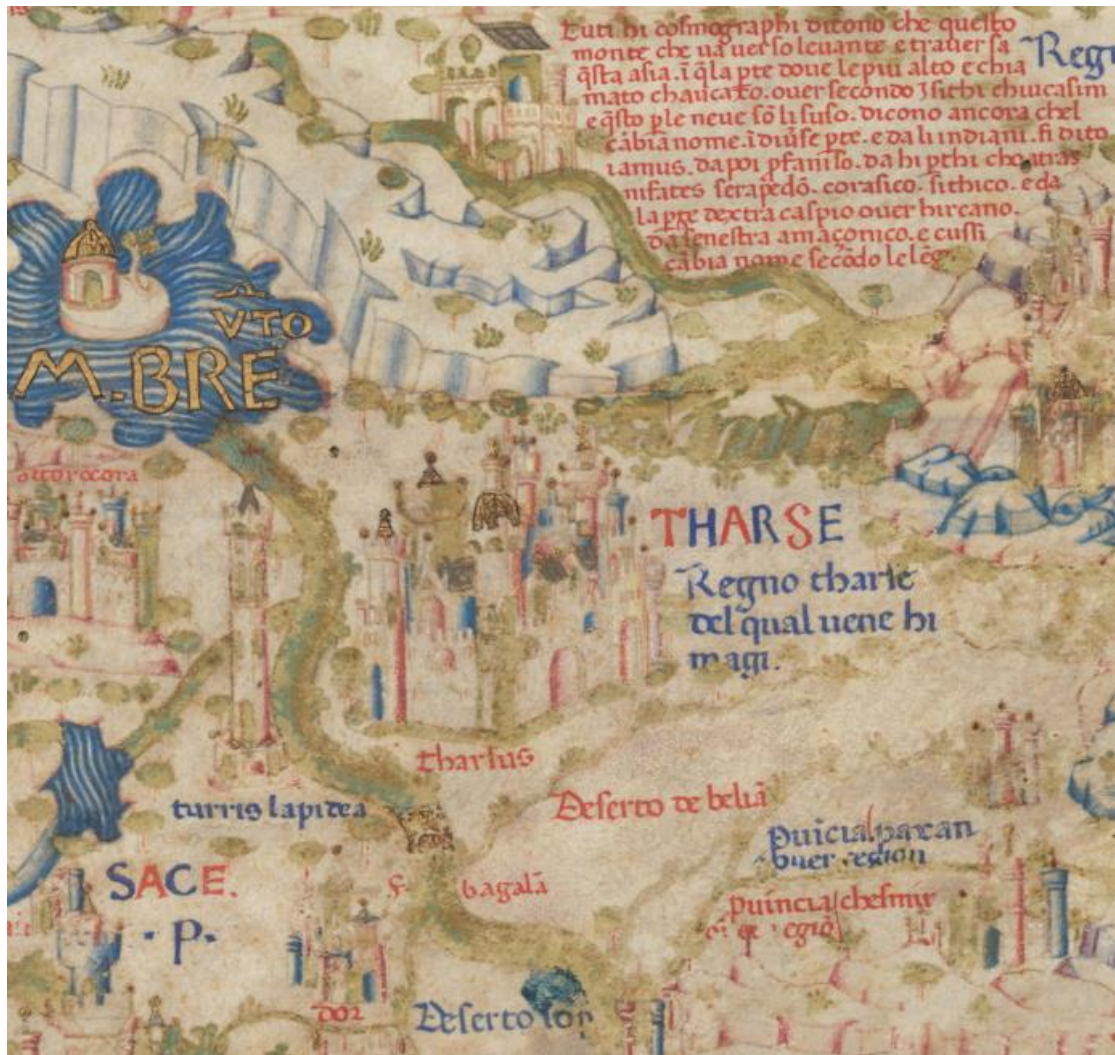 Tuti hi cosmographi dicono che questo
monte che va verso levante e traversa
q̃sta asia. ĩ q̃la pte dove le piu alto e chia
mato chaucaxo. over secondo I sithi chiucasim
e q̃sto p le neve sõ li suso. dicono ancora chel
cãbia nome. ĩ diũse pte. e da li indiani. fi dito
iamus. da poi
nifates serapedõ. corasico. sithico. e da
la pte dextra caspio over hircano.
da senestra amaçonico. e cussi
cãbia nome secõdo le lẽg
Reg
VTO
M. BRE
ottorocora
THARSE
Regno tharse
del qual vene hi
magi.
tharsus
turris lapidea
Deserto de beliã
SACE.
. P.
f. bagalã
pvicia
over region
pvincia chesmir
egiõ
Deserto lop